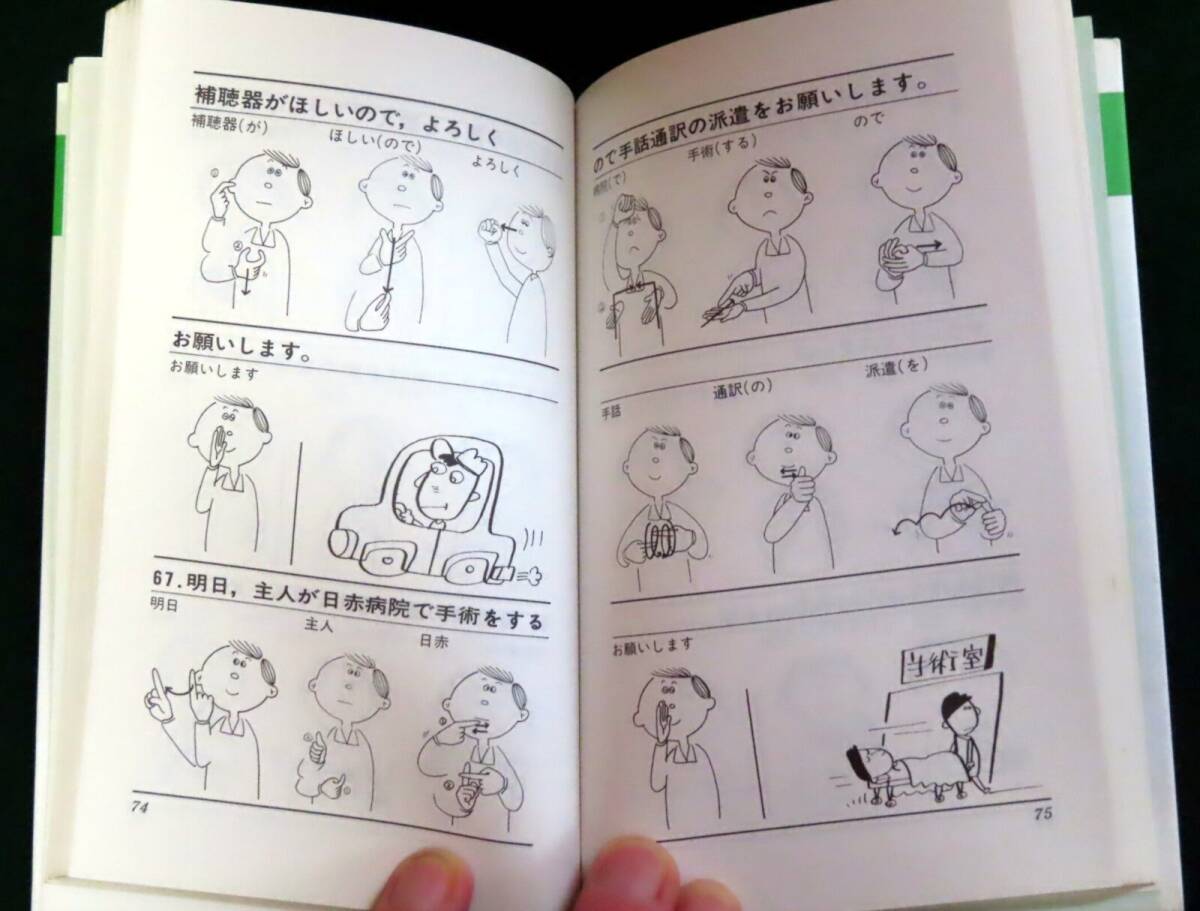 補聴器がほしいので，よろしく
補聴器(が)
ほしい(ので)
よろしく
お願いします。
お願いします
67.明日，主人が日赤病院で手術をする
明日
主人
日赤
74
ので手話通訳の派遣をお願いします。
病院(で)
手術(する)
ので
手話
通訳(の)
派遣(を)
お願いします
手術室
75